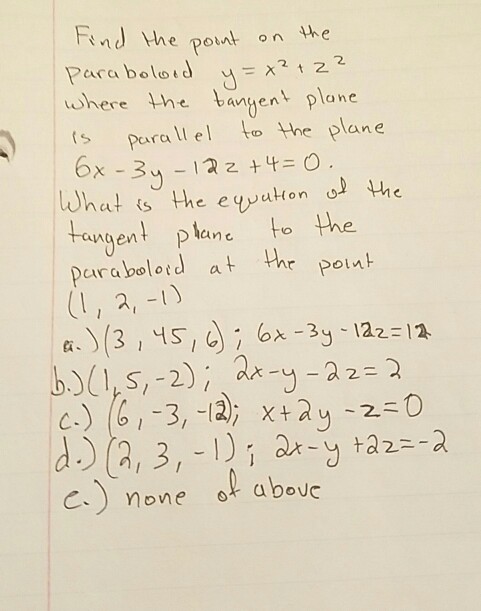 Find the point on the
paraboloid y = x² + z²
where the tangent plane
is parallel to the plane
6x - 3y - 12z + 4 = 0.
What is the equation of the
tangent plane to the
paraboloid at the point
(1, 2, -1)
a.) (3, 45, 6); 6x - 3y - 12z = 12
b.) (1, 5, -2); 2x - y - 2z = 2
c.) (6, -3, -12); x + 2y - z = 0
d.) (2, 3, -1); 2x - y + 2z = -2
e.) none of above